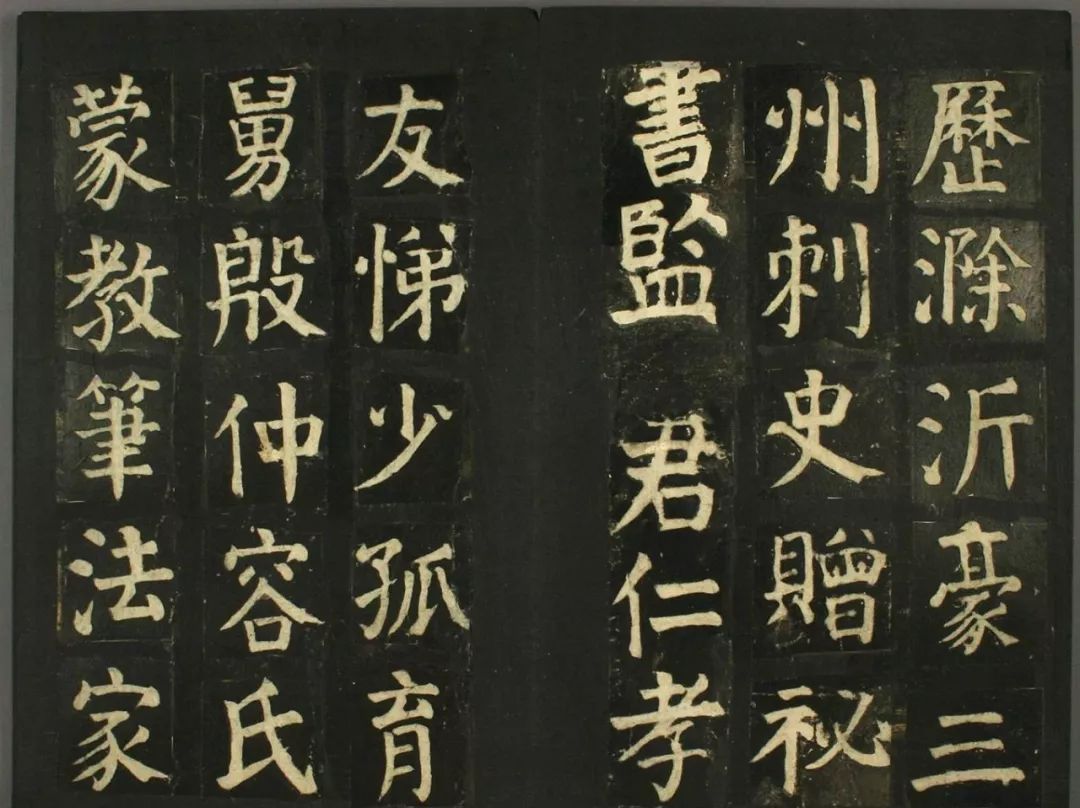 歷滁沂豪三
州刺史贈祕
書監君仁孝
友悌少孤育
舅殷仲容氏
蒙教筆法家